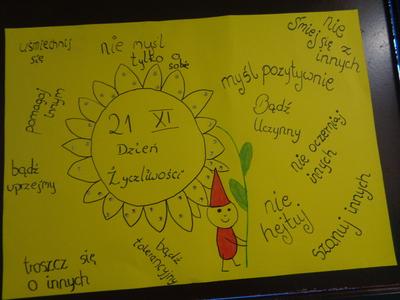 uśmiechnij
się
nie myśl
tylko o
sobie
nie
śmiej
się z
innych
myśl pozytywnie
pomagaj
innym
21 XI
Dzień
Życzliwości
Bądź
Uczynny
nie oczerniaj
innych
bądź
uprzejmy
nie
hejtuj
szanuj innych
bądź
tolerancyjny
troszcz się
o innych